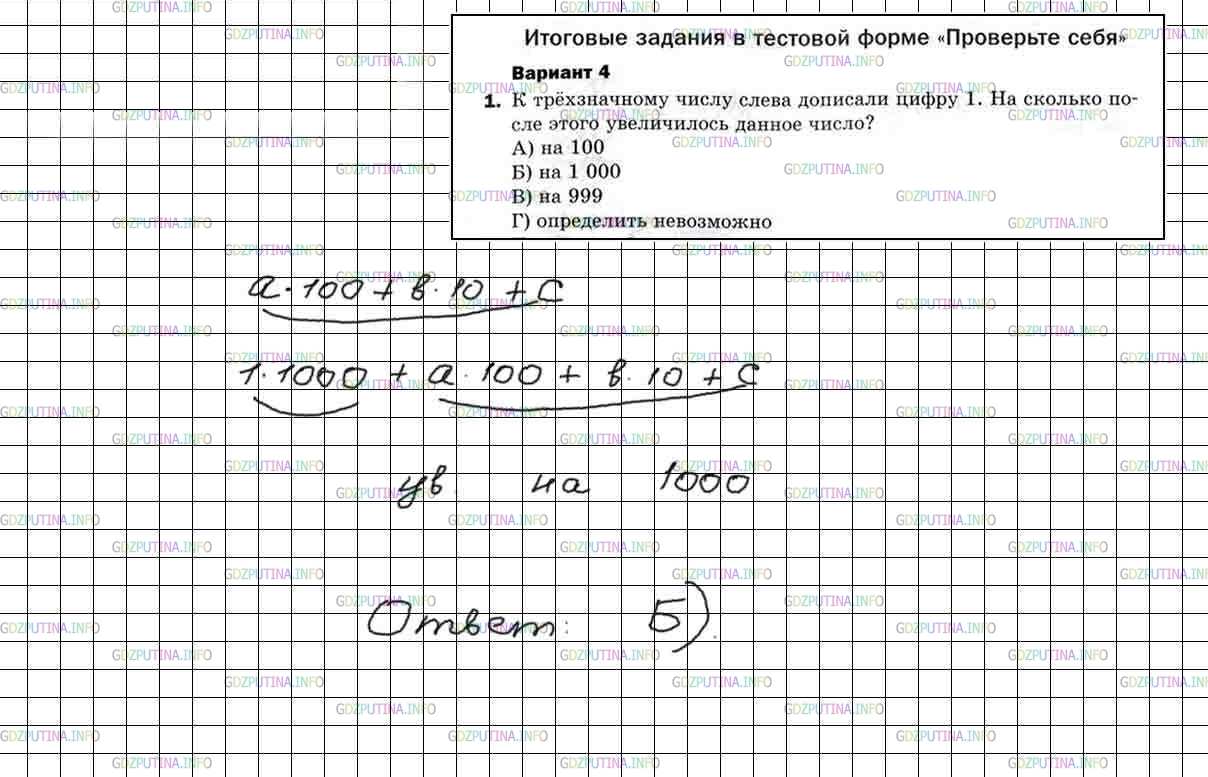 Итоговые задания в тестовой форме «Проверьте себя»
Вариант 4
1. К трёхзначному числу слева дописали цифру 1. На сколько по-
сле этого увеличилось данное число?
А) на 100
Б) на 1 000
В) на 999
Г) определить невозможно
а·100 + в·10 + с
1·1000 + а·100 + в·10 + с
ув. на 1000
Ответ: Б).
GDZPUTINA.INFO